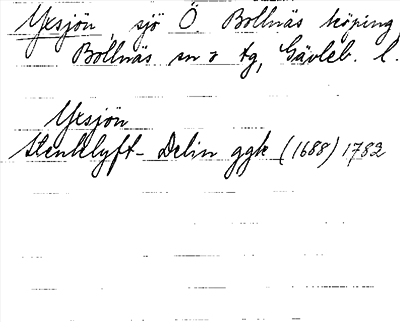 Yxsjön, sjö Ö. Bollnäs köping
Bollnäs sn o tg, Gävleb. l.
Yxsjön
Stenklyft- Delin ggk (1688) 1782